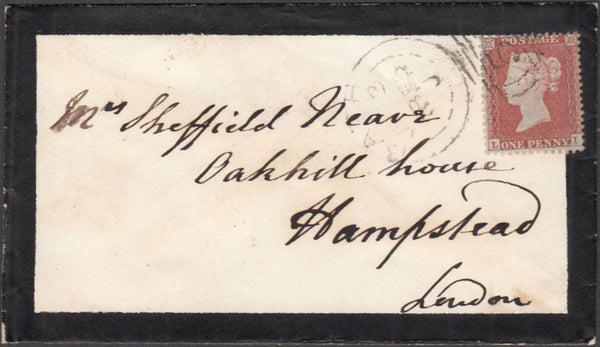 POSTAGE
ONE PENNY
Mrs Sheffield Neave
Oakhill house
Hampstead
London